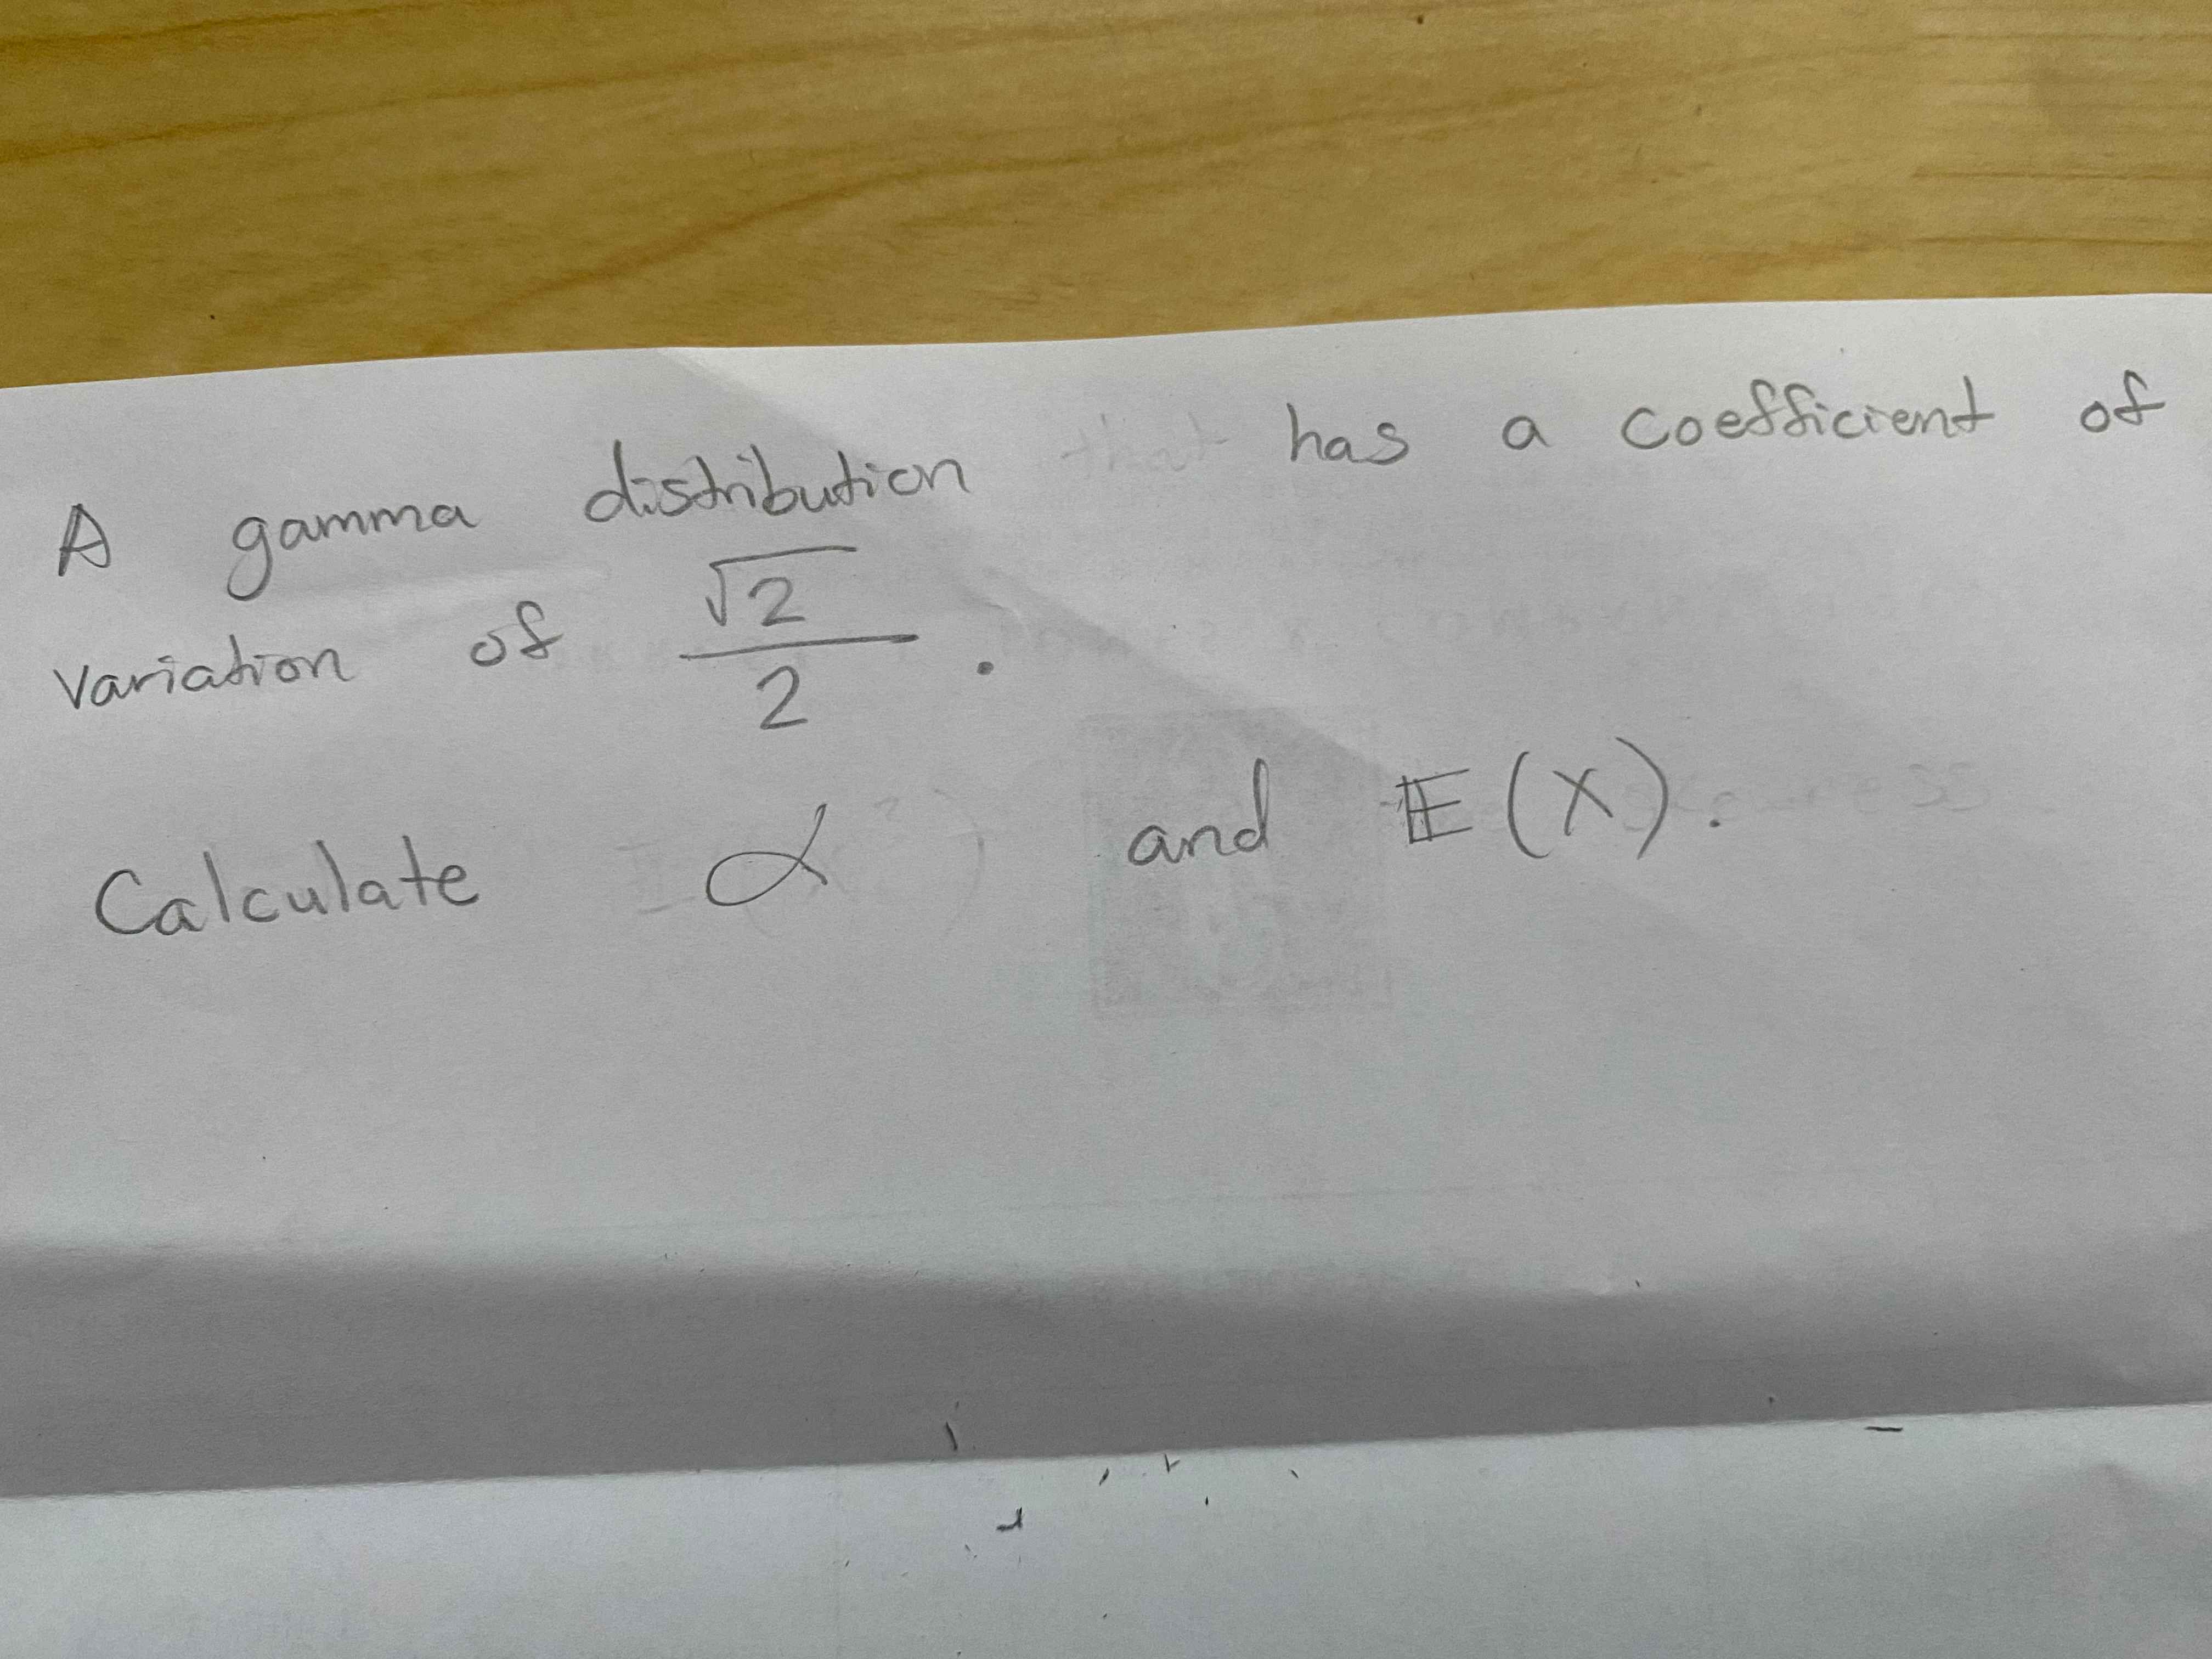 A gamma distribution has a coefficient of
variation of √2/2.
Calculate α and 𝔼(X).